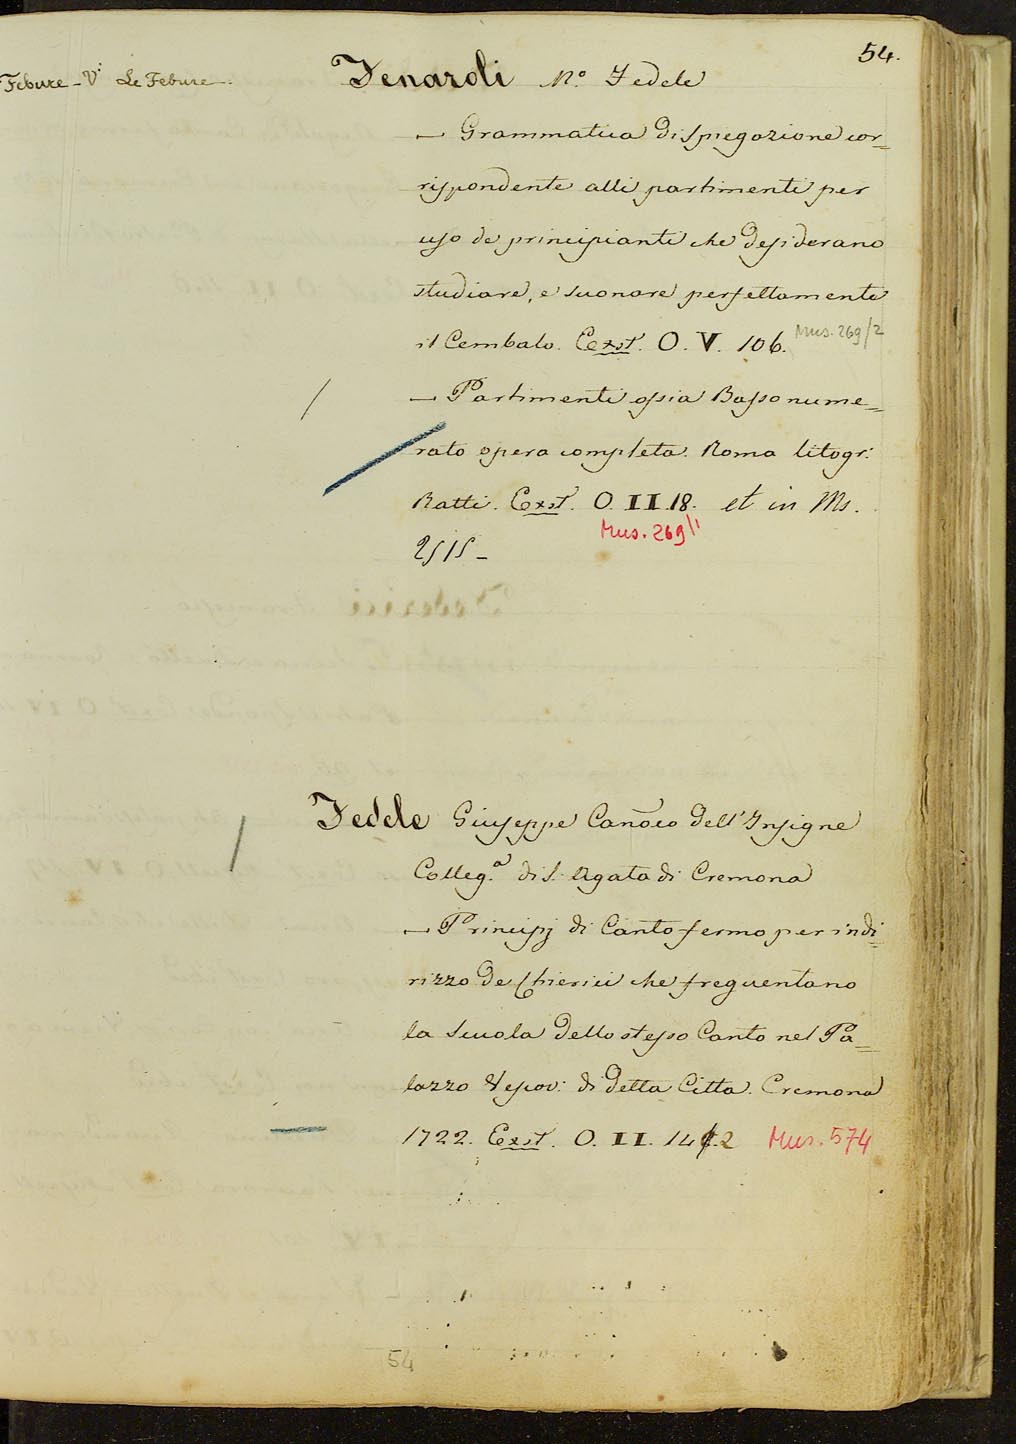 54.
Febure - V.i Le Febure.
Fenaroli M.o Fedele
— Grammatica di spiegazione cor=
rispondente alli partimenti per
uso de principianti che desiderano
studiare, e suonare perfettamente
il Cembalo. Exst. O. V. 106. Mus. 269/2
— Partimenti ossia Basso nume=
rato opera completa. Roma litogr:
Ratti. Exst. O. II. 18. et in Ms.
Mus. 269/1
2515 -
Fedele Giuseppe Canõco dell'Insigne
Colleg.a di S. Agata di Cremona
— Principj di Canto fermo per indi=
rizzo de Chierici che frequentano
la Scuola dello stesso Canto nel Pa=
lazzo Vescov: di detta Citta. Cremona
1722. Exst. O. II. 142 Mus. 574
54